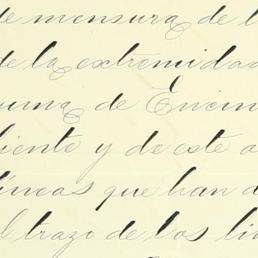 de mensura de l
de la extremidad
uma de Encin
iente y de este a
líneas que han d
l trazo de los lin